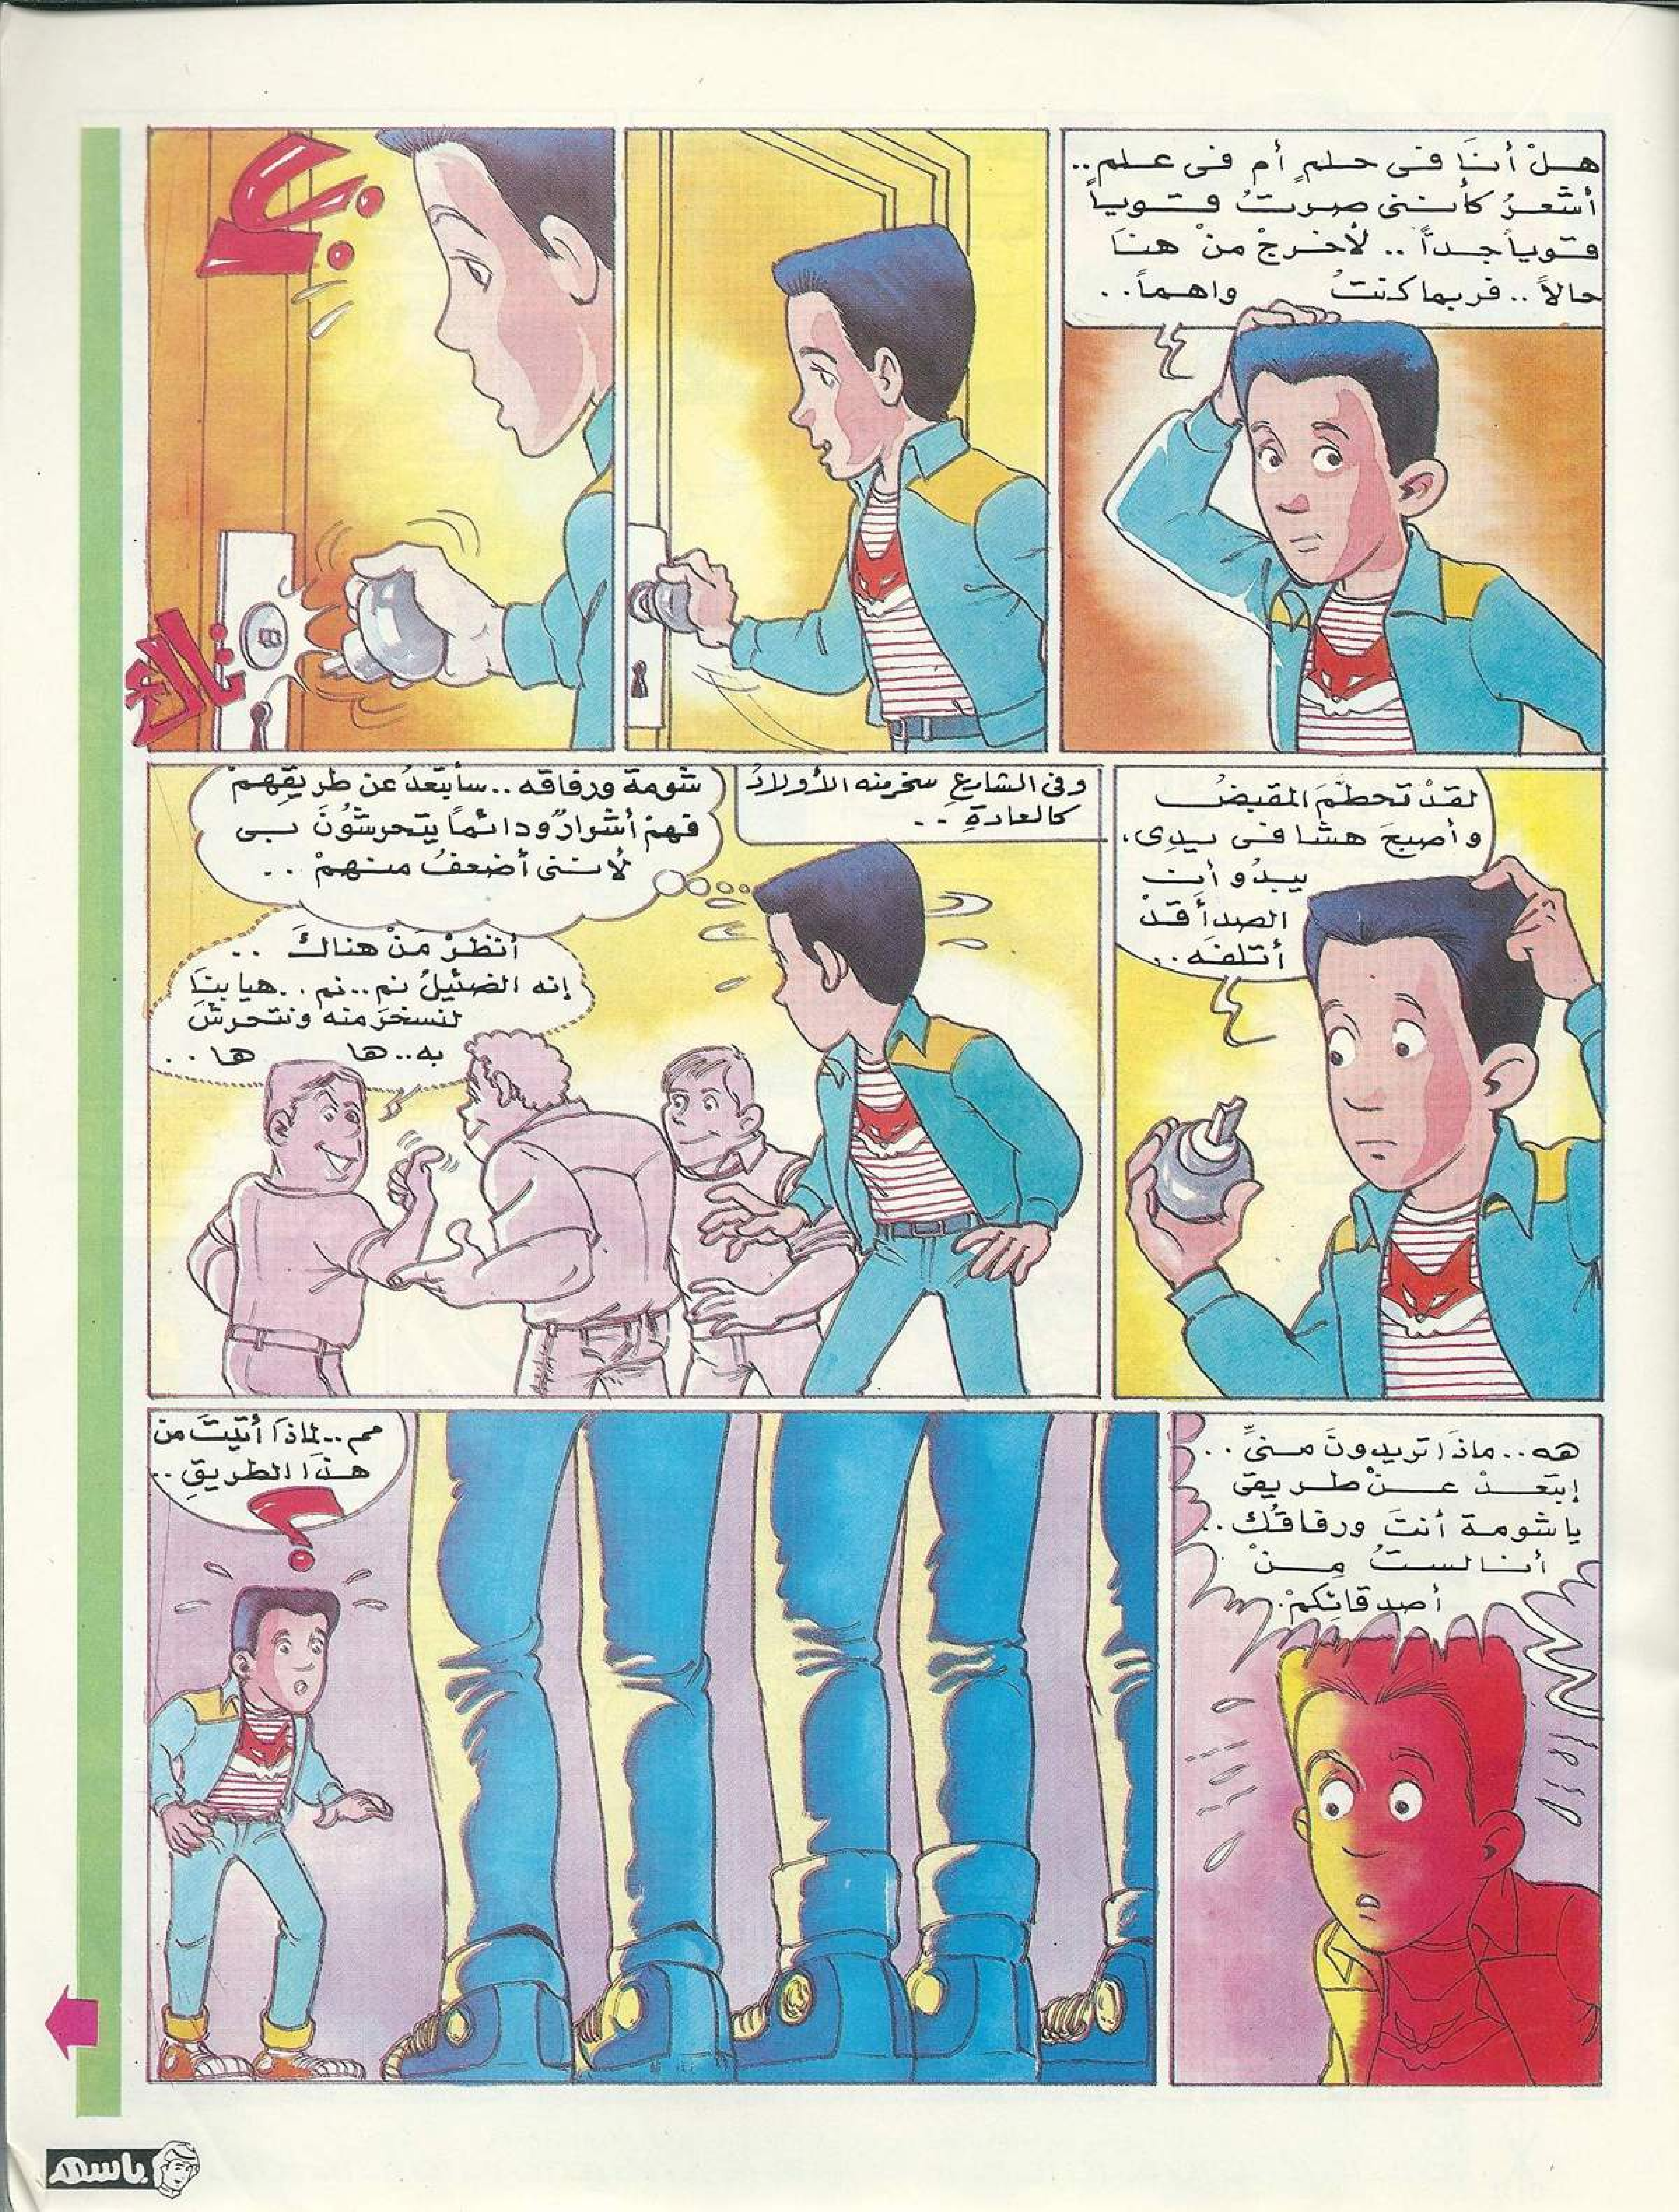 هلْ أنَا فى حلمٍ أم فى علم..
أشعرُ كأننى صرتُ قوياً
قوياً جداً .. لأخرجْ منْ هنَا
حالاً .. فربما كنتُ واهماً..
؟!
تاك
لقدْ تحطمَ المقبضُ
وأصبحَ هشا فى يدِى،
يبدُو أن
الصدأَ قدْ
أتلفَه..
وفى الشارعِ سخر منه الأولادُ
كالعادةِ ..
شومة ورفاقه .. سأبتعدُ عن طريقِهمْ
فهمْ أشرارٌ ودائماً يتحرشُونَ بى
لأننى أضعفُ منهمْ ..
أنظرْ مَنْ هناكَ ..
إنه الضئيلُ نم..نم .. هيا بنَا
لنسخرَ منه ونتحرشَ
به..ها ها ..
هه.. ماذَا تريدونَ منىِّ ..
إبتعدْ عنْ طريقى
يا شومة أنتَ ورفاقُك ..
أنا لستُ مِنْ
أصدقائكمْ.
مم..لماذَا أتيتَ من
هذَا الطريقِ ..
؟
باسم